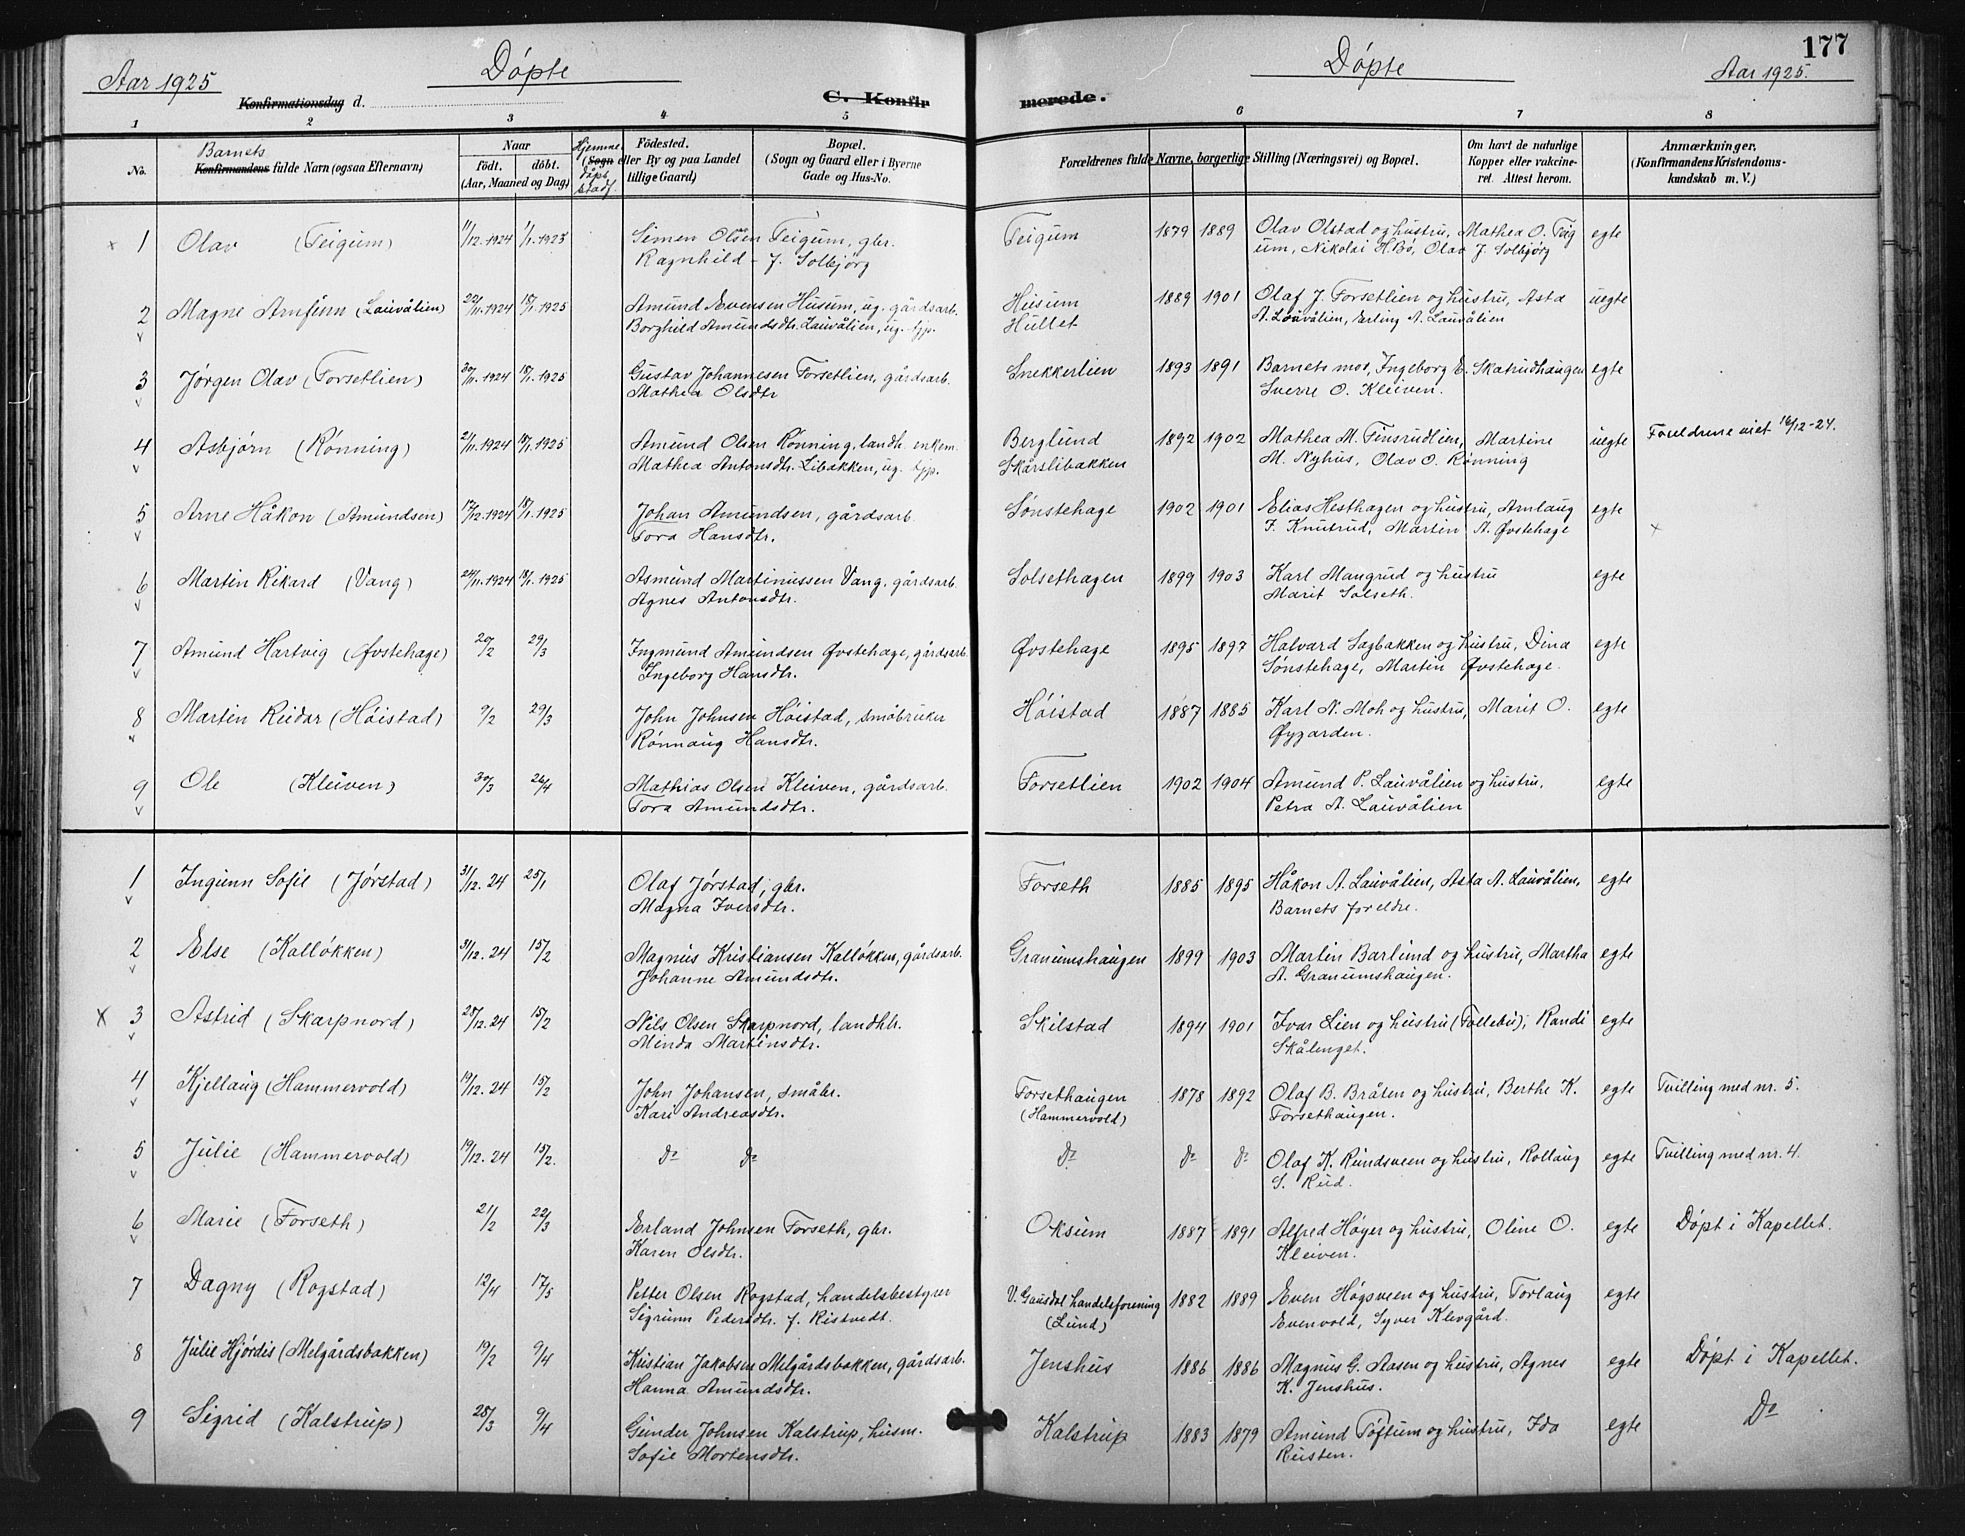 177
Aar 1925 Døpte Døpte Aar 1925.
Konfirmationsdag d. C. Konfir merede.
1 2 3 4 5 6 7 8
No.
Barnets
Konfirmandens fulde Navn (ogsaa Efternavn)
Naar
født. døbt.
(Aar, Maaned og Dag)
Hjemme
døpt
Fødested.
(Sogn eller By og paa Landet
tillige Gaard)
Bopæl.
(Sogn og Gaard eller i Byerne
Gade og Hus-No.
Forældrenes fulde Navne, borgerlige Stilling (Næringsvei) og Bopæl.
Om havt de naturlige
Kopper eller vakcine-
ret. Attest herom.
Anmærkninger.
(Konfirmandens Kristendoms-
kundskab m. V.)
1 Olav (Teigum) 11/12.1924 1/1.1925 Simen Olsen Teigum, gbr. Teigum 1879 1889 Olav Olstad og hustru, Mathea O. Teig egte
Ragnhild - f. Solbjørg um, Nikolai H. Bø, Olav J. Solbjørg
2 Magne Arnfinn (Lauvålien) 22/11.1924 18/1.1925 Amund Evensen Husum, ug. gårdsarb. Husum 1889 1901 Olaf J. Forsetlien og hustru, Asta uegte
Borghild Amundsdtr. Lauvålien, ug. tjp. Hullet A. Lauvålien, Erling A. Lauvålien
3 Jørgen Olav (Forsetlien) 30/11.1924 18/1.1925 Gustav Johannesen Forsetlien, gårdsarb. Snekkerlien 1893 1891 Barnets mor, Ingeborg E. Skatrudhaugen egte
Mathea Olsdtr Sverre O. Kleiven.
4 Asbjørn (Rønning) 2/11.1924 18/1.1925 Amund Olsen Rønning, landh. enkem. Berglund 1892 1902 Mathea M. Finsrudlien, Martine uegte Foreldrene viet 16/12-24.
Mathea Antonsdtr. Libakken, ug. tjp. Skårslibakken M. Nyhus, Olav O. Rønning
5 Arne Håkon (Amundsen) 17/12.1924 18/1.1925 Johan Amundsen, gårdsarb. Sønstehage 1902 1901 Elias Hesthagen og hustru, Arnlaug egte
Tora Hansdtr. J. Knutrud, Martin A. Øvstehage
6 Martin Rikard (Vang) 24/11.1924 18/1.1925 Asmund Martinussen Vang, gårdsarb. Solsethagen 1899 1903 Karl Mangrud og hustru egte
Agnes Antonsdtr. Marit Solseth.
7 Amund Hartvig (Øvstehage) 20/2 29/3 Ingmund Amundsen Øvstehage, gårdsarb. Øvstehage 1895 1897 Halvard Sagbakken og hustru, Dina egte
Ingeborg Hansdtr. Sønstehage, Martin Øvstehage.
8 Martin Reidar (Høistad) 9/2 29/3 John Johnsen Høistad, småbruker Høistad 1887 1885 Karl N. Moh og hustru, Marit O. egte
Rønnaug Hansdtr. Øygarden.
9 Ole (Kleiven) 30/3 26/4 Mathias Olsen Kleiven, gårdsarb. Forsetlien 1902 1904 Amund P. Lauvålien og hustru, egte
Tora Amundsdtr. Petra A. Lauvålien
1 Ingunn Sofie (Jørstad) 31/12.24 25/1 Olaf Jørstad, gbr. Forseth 1885 1895 Håkon A. Lauvålien, Asta A. Lauvålien, egte
Magna Iversdtr. Barnets foreldre.
2 Else (Kalløkken) 31/12.24 15/2 Magnus Kristiansen Kalløkken, gårdsarb. Granumshaugen 1899 1903 Martin Barlund og hustru, Martha egte
Johanne Amundsdtr. A. Granumshaugen.
3 Astrid (Skarpnord) 28/12.24 15/2 Nils Olsen Skarpnord, landhl. Skilstad 1894 1901 Ivar Lien og hustru (Follebu), Randi egte
Minda Martinsdtr. Skålenget.
4 Kjellaug (Hammervold) 19/12.24 15/2 John Johansen, småbr. Forsethaugen 1878 1892 Olaf B. Bråten og hustru, Berthe K. egte Tvilling med nr. 5.
Kari Andreasdtr. (Hammervold) Forsethaugen.
5 Julie (Hammervold) 19/12.24 15/2. do do do do do Olaf K. Rundsveen og hustru, Rollaug egte Tvilling med nr. 4.
S. Rud.
6 Marie (Forseth) 21/2 22/3 Erland Johnsen Forseth, gbr. Oksum 1887 1891 Alfred Høyer og hustru, Oline O. egte Døpt i Kapellet.
Karen Olsdtr. Kleiven.
7 Dagny (Rogstad) 12/4 17/5 Petter Olsen Rogstad, handelsbestyrer V. Gausdal handelsforening 1882 1889 Even Høgsveen og hustru, Torlaug egte
Sigrunn Pedersdtr. f. Ristvedt. (Lund) Evenvold, Syver Klevgård.
8 Julie Hjørdis (Melgårdsbakken) 19/2 9/4 Kristian Jakobsen Melgårdsbakken, gårdsarb. Jenshus 1886 1886 Magnus G. Aasen og hustru, Agnes egte Døpt i Kapellet.
Hanna Amundsdtr. K. Jenshus.
9 Sigrid (Kalstrup) 28/3 9/4 Gunder Johnsen Kalstrup, husm. Kalstrup 1883 1879 Amund Tøftum og hustru, Ida egte Do
Sofie Mortensdtr. Reisten.